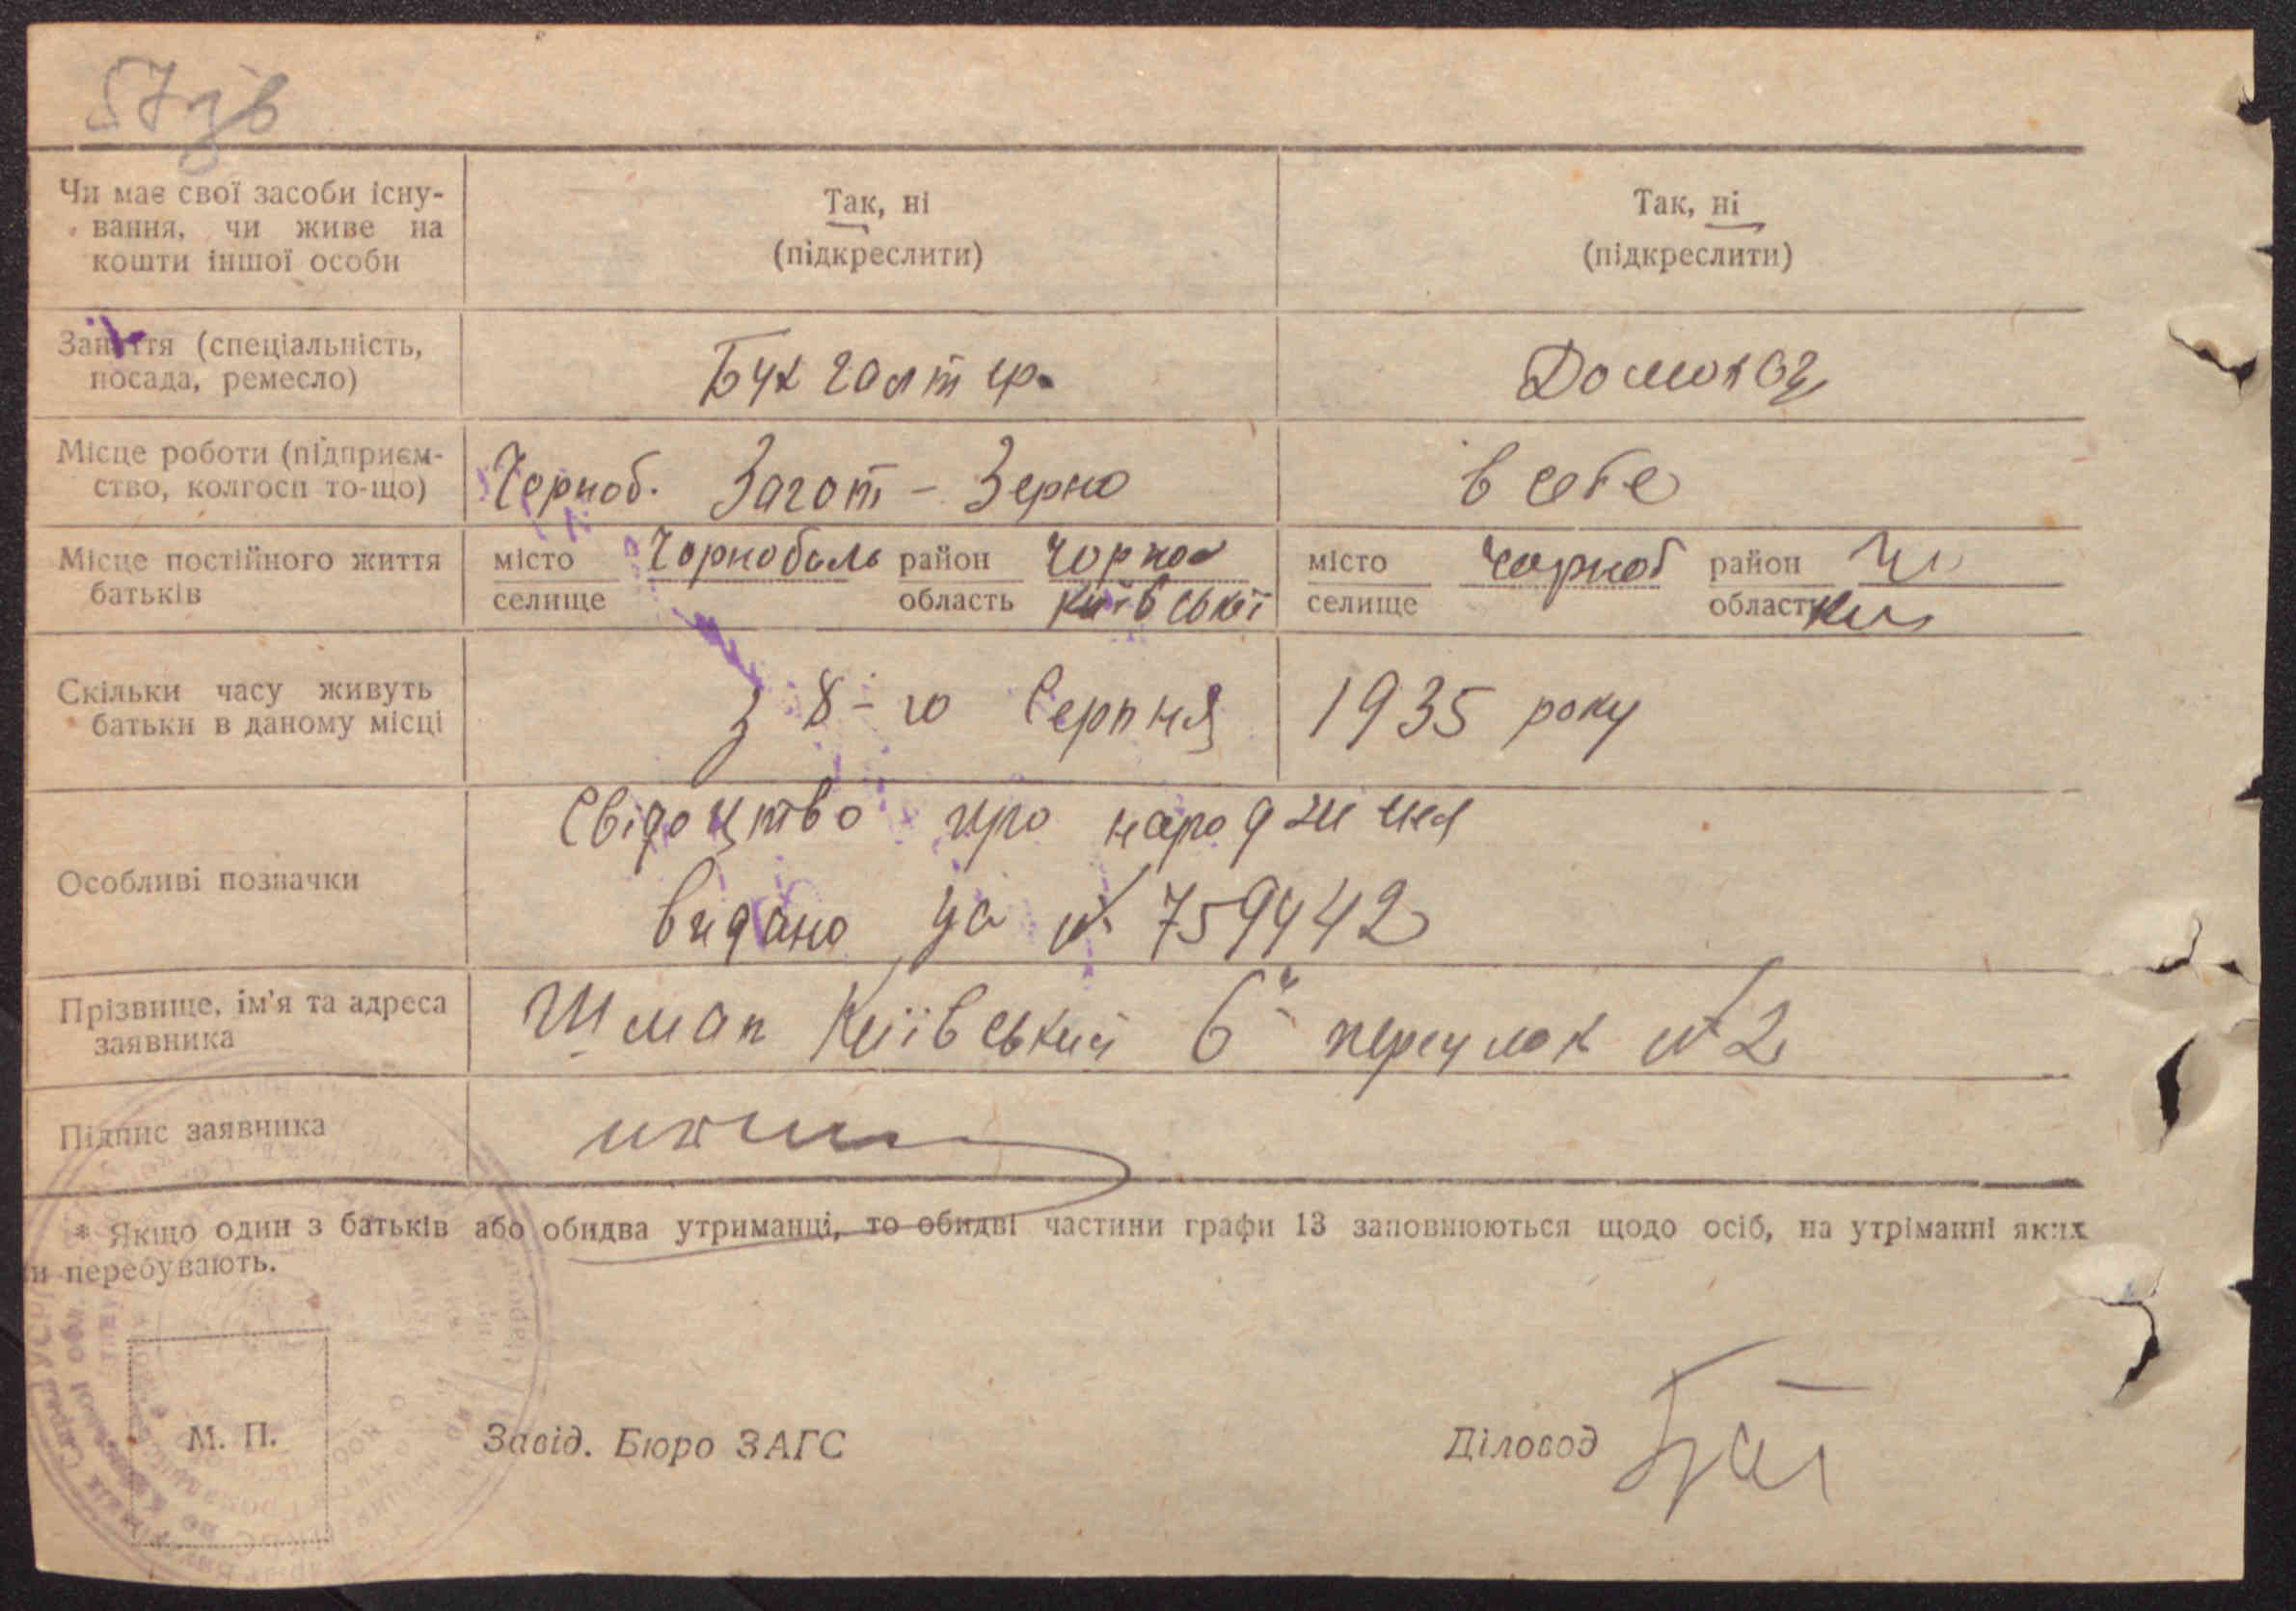 57 зв
Чи має свої засоби існу-
вання, чи живе на
кошти іншої особи
Так, ні
(підкреслити)
Так, ні
(підкреслити)
Заняття (спеціальність,
посада, ремесло)
Бухгалтер.
Домохоз
Місце роботи (підприєм-
ство, колгосп то-що)
Чорноб. Загот - Зерно
в себе
Місце постійного життя
батьків
місто Чорнобиль район Чорноб
селище область Київської
місто Чорноб район Чи
селище область Ки
Скільки часу живуть
батьки в даному місці
з 8-го Серпня 1935 року
Особливі позначки
Свідоцтво про народження
видано за № 759442
Прізвище, ім'я та адреса
заявника
Київський 6й переулок № 2
Підпис заявника
* Якщо один з батьків або обидва утриманці, то обидві частини графи 13 заповнюються щодо осіб, на утріманні яких
и перебувають.
М. П.
Завід. Бюро ЗАГС
Діловод